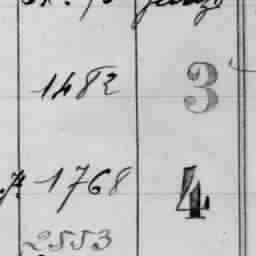 1482 3
1768 4
2553